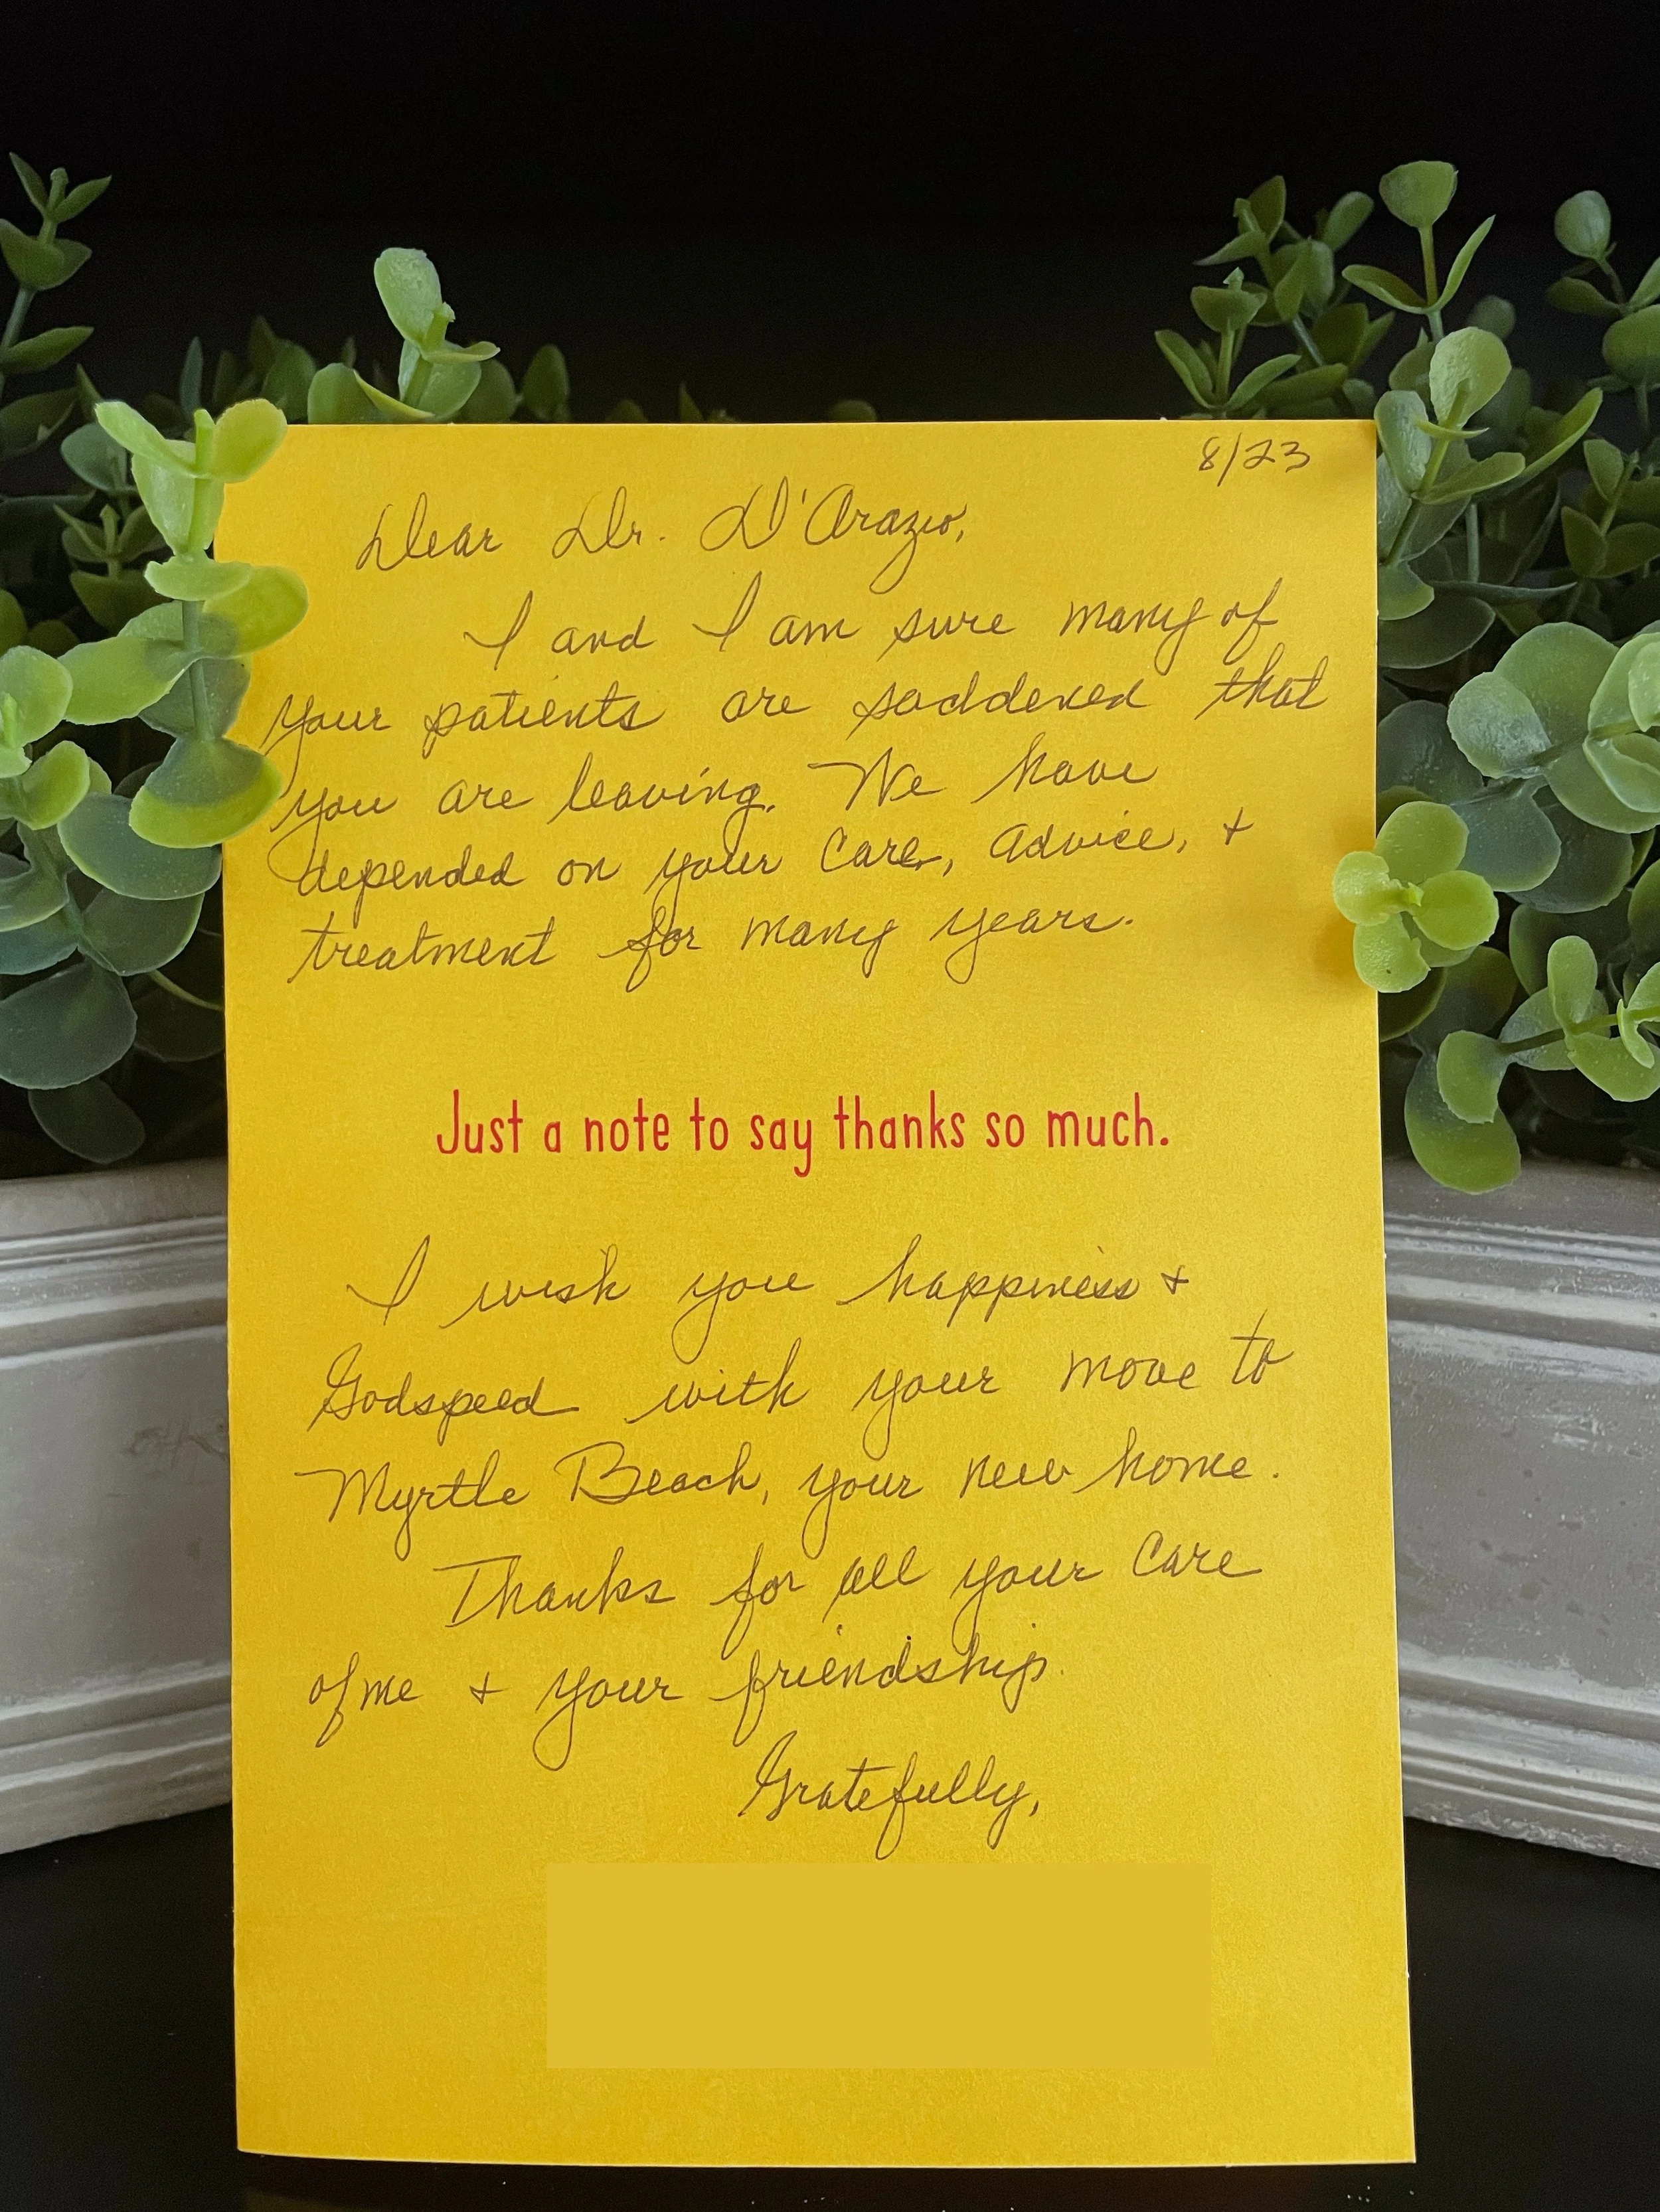 8/23
Dear Dr. D'Orazio,
I and I am sure many of
your patients are saddened that
you are leaving. We have
depended on your care, advice, +
treatment for many years.
Just a note to say thanks so much.
I wish you happiness +
Godspeed with your move to
Myrtle Beach, your new home.
Thanks for all your care
of me + your friendship.
Gratefully,